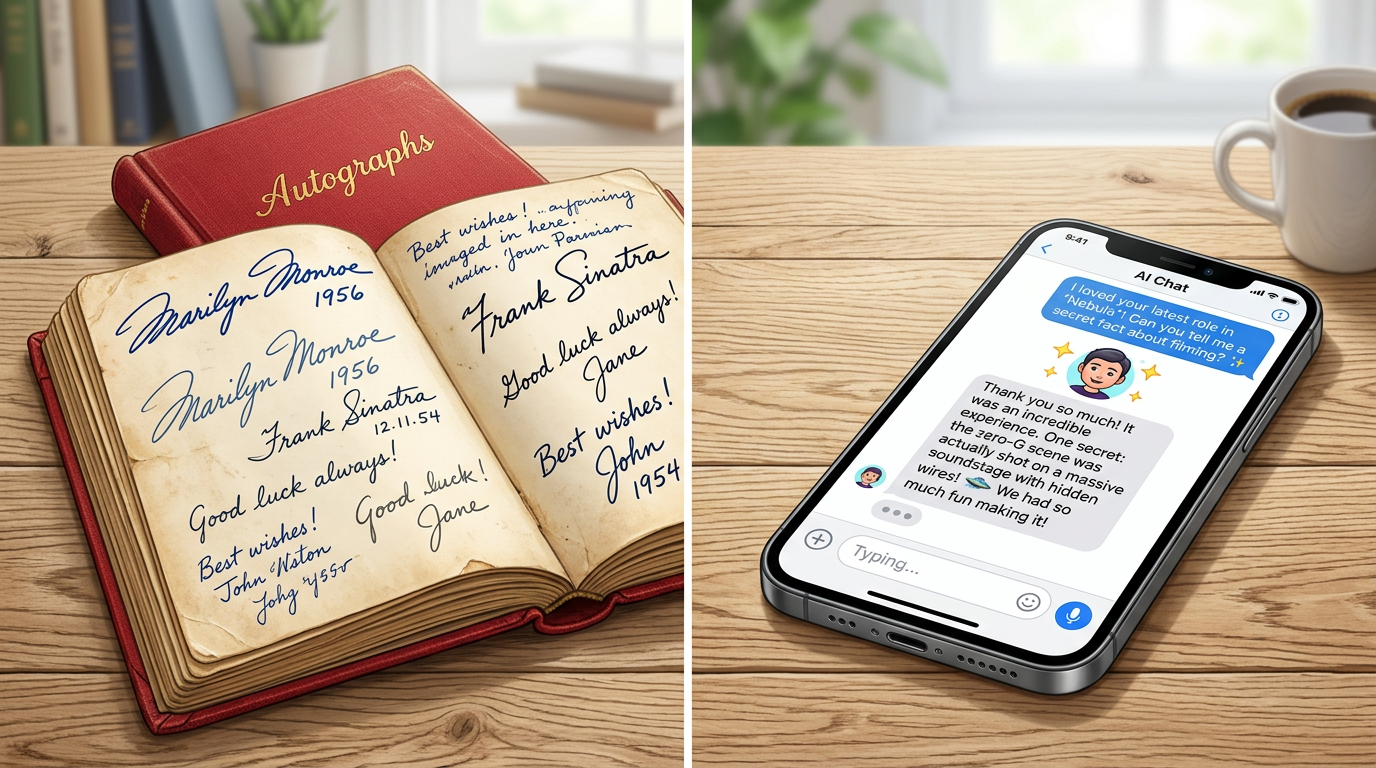 Autographs
Marilyn Monroe
1956
Marilyn Monroe
1956
Frank Sinatra
12.11.54
Good luck always!
Good luck!
Jane
Best wishes!
John
Best wishes!
in here.
Frank Sinatra
Good luck always!
Jane
Best wishes!
John
1954
9:41
AI Chat
I loved your latest role in
"Nebula"! Can you tell me a
secret fact about filming? ✨
Thank you so much! It
was an incredible
experience. One secret:
the zero-G scene was
actually shot on a massive
soundstage with hidden
wires! 🛸 We had so
much fun making it!
Typing...